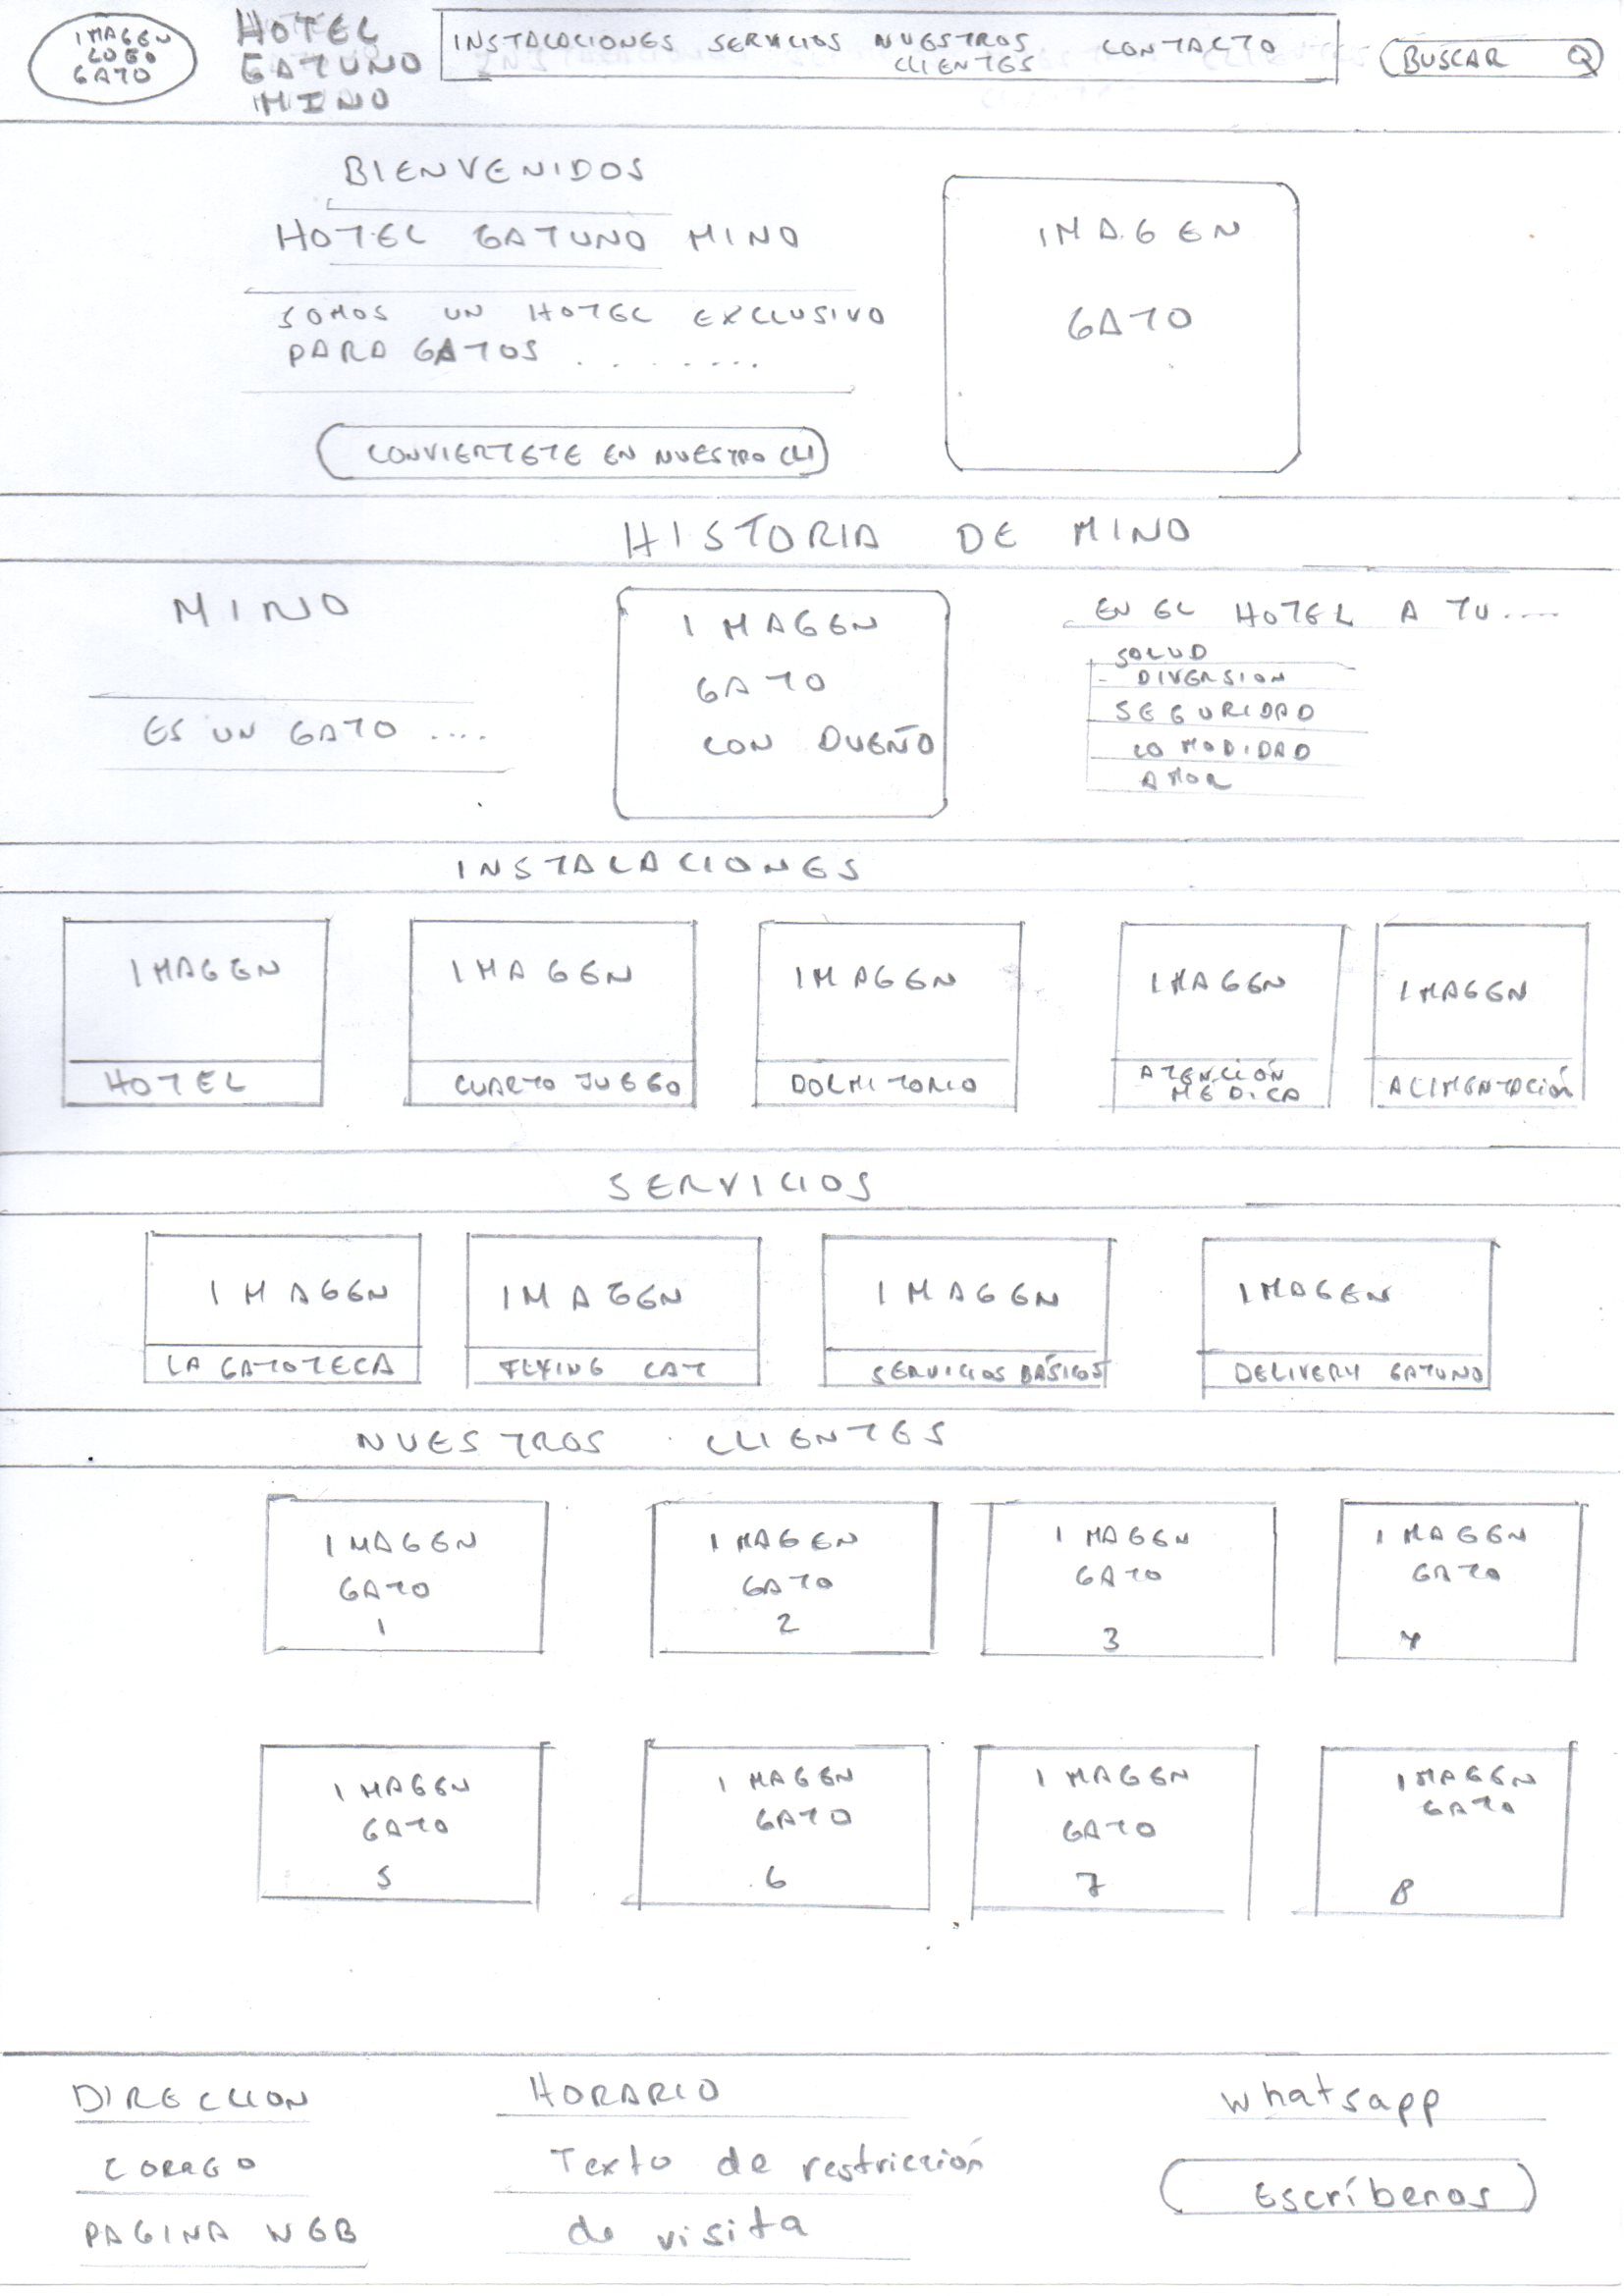 IMAGEN
LOGO
GATO
HOTEL
GATUNO
MINO
INSTALACIONES SERVICIOS NUESTROS
CLIENTES
CONTACTO
BUSCAR
BIENVENIDOS
HOTEL GATUNO MINO
SOMOS UN HOTEL EXCLUSIVO
PARA GATOS ........
CONVIERTETE EN NUESTRO CLI
IMAGEN
GATO
HISTORIA DE MINO
MINO
ES UN GATO ....
IMAGEN
GATO
CON DUEÑO
EN EL HOTEL A TU ....
SALUD
- DIVERSION
SEGURIDAD
COMODIDAD
AMOR
INSTALACIONES
IMAGEN
HOTEL
IMAGEN
CUARTO JUEGO
IMAGEN
DORMITORIO
IMAGEN
ATENCIÓN
MEDICA
IMAGEN
ALIMENTACIÓN
SERVICIOS
IMAGEN
LA GATOTECA
IMAGEN
FLYING CAT
IMAGEN
SERVICIOS BÁSICOS
IMAGEN
DELIVERY GATUNO
NUESTROS CLIENTES
IMAGEN
GATO
1
IMAGEN
GATO
2
IMAGEN
GATO
3
IMAGEN
GATO
4
IMAGEN
GATO
5
IMAGEN
GATO
6
IMAGEN
GATO
7
IMAGEN
GATO
8
DIRECCION
CORREO
PAGINA WEB
HORARIO
Texto de restricción
de visita
whatsapp
Escríbenos